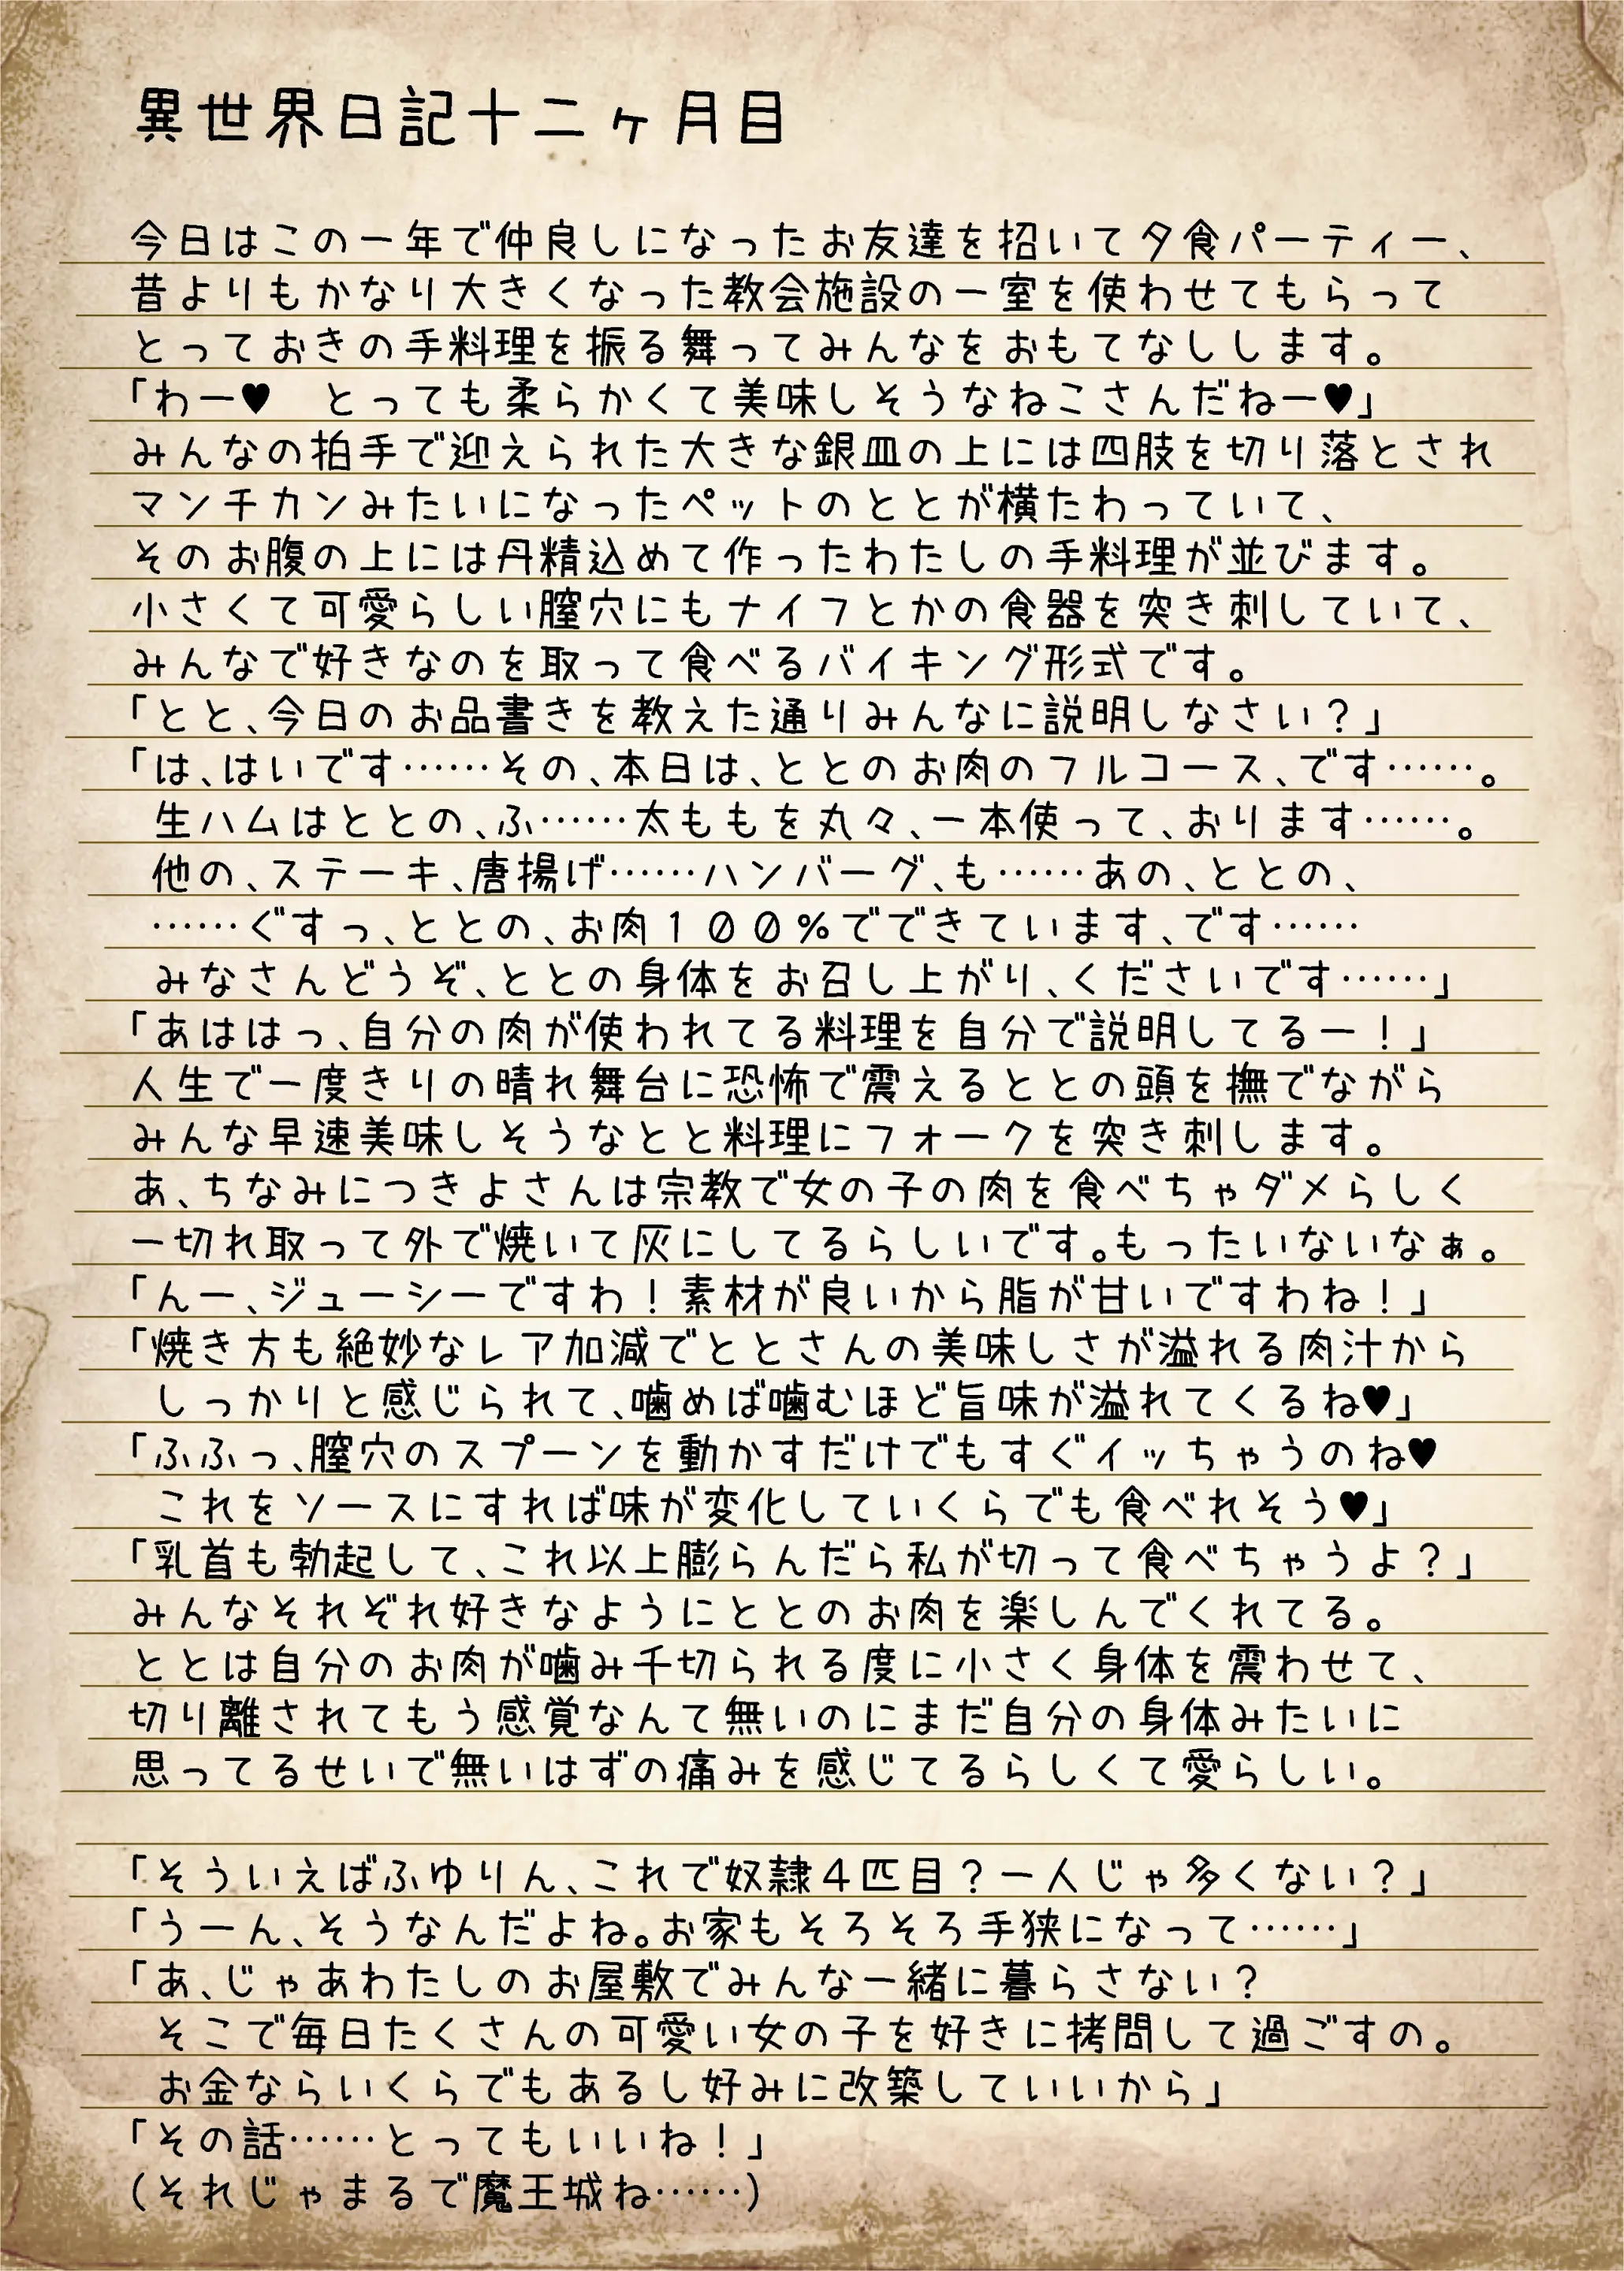 異世界日記十二ヶ月目
今日はこの一年で仲良しになったお友達を招いて夕食パーティー、
昔よりもかなり大きくなった教会施設の一室を使わせてもらって
とっておきの手料理を振る舞ってみんなをおもてなしします。
「わー♥　とっても柔らかくて美味しそうなねこさんだねー♥」
みんなの拍手で迎えられた大きな銀皿の上には四肢を切り落とされ
マンチカンみたいになったペットのととが横たわっていて、
そのお腹の上には丹精込めて作ったわたしの手料理が並びます。
小さくて可愛らしい膣穴にもナイフとかの食器を突き刺していて、
みんなで好きなのを取って食べるバイキング形式です。
「とと、今日のお品書きを教えた通りみんなに説明しなさい？」
「は、はいです……その、本日は、ととのお肉のフルコース、です……。
生ハムはととの、ふ……太ももを丸々、一本使って、おります……。
他の、ステーキ、唐揚げ……ハンバーグ、も……あの、ととの、
……ぐすっ、ととの、お肉１００％でできています、です……
みなさんどうぞ、ととの身体をお召し上がり、くださいです……」
「あははっ、自分の肉が使われてる料理を自分で説明してるー！」
人生で一度きりの晴れ舞台に恐怖で震えるととの頭を撫でながら
みんな早速美味しそうなとと料理にフォークを突き刺します。
あ、ちなみにつきよさんは宗教で女の子の肉を食べちゃダメらしく
一切れ取って外で焼いて灰にしてるらしいです。もったいないなぁ。
「んー、ジューシーですわ！素材が良いから脂が甘いですわね！」
「焼き方も絶妙なレア加減でととさんの美味しさが溢れる肉汁から
しっかりと感じられて、噛めば噛むほど旨味が溢れてくるね♥」
「ふふっ、膣穴のスプーンを動かすだけでもすぐイッちゃうのね♥
これをソースにすれば味が変化していくらでも食べれそう♥」
「乳首も勃起して、これ以上膨らんだら私が切って食べちゃうよ？」
みんなそれぞれ好きなようにととのお肉を楽しんでくれてる。
ととは自分のお肉が噛み千切られる度に小さく身体を震わせて、
切り離されてもう感覚なんて無いのにまだ自分の身体みたいに
思ってるせいで無いはずの痛みを感じてるらしくて愛らしい。
「そういえばふゆりん、これで奴隷４匹目？一人じゃ多くない？」
「うーん、そうなんだよね。お家もそろそろ手狭になって……」
「あ、じゃあわたしのお屋敷でみんな一緒に暮らさない？
そこで毎日たくさんの可愛い女の子を好きに拷問して過ごすの。
お金ならいくらでもあるし好みに改築していいから」
「その話……とってもいいね！」
（それじゃまるで魔王城ね……）